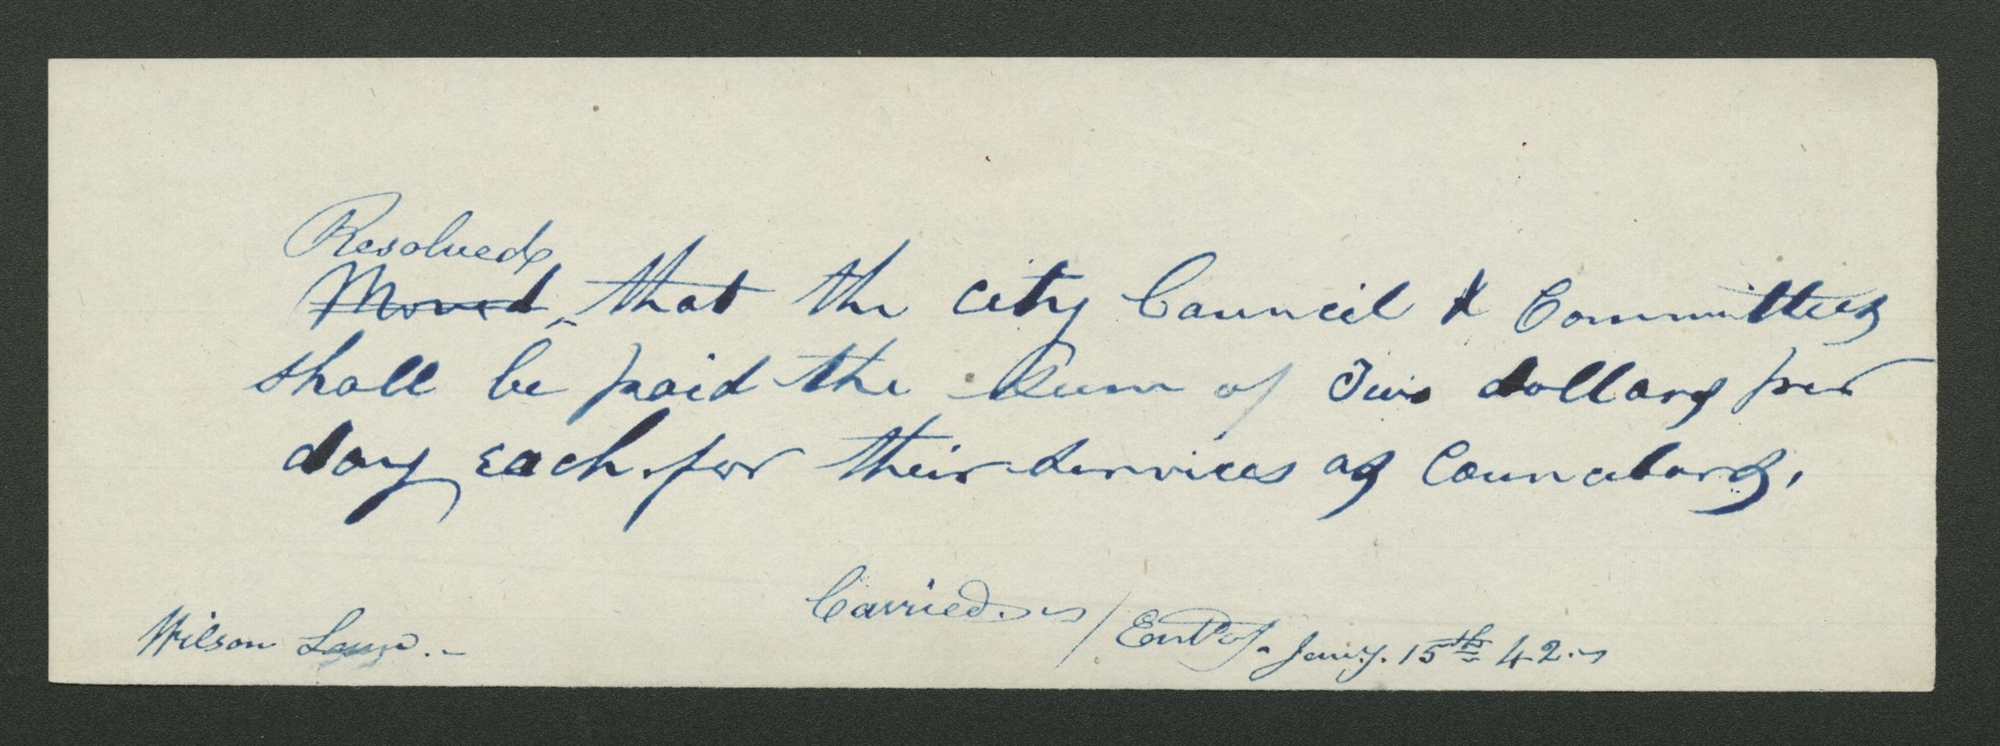 Resolved
Moved, that the city Council & Committees
shall be paid the Sum of Two dollars per
day each for their services as Councelors,
Carried.
Wilson Law.
Jany. 15th 42.